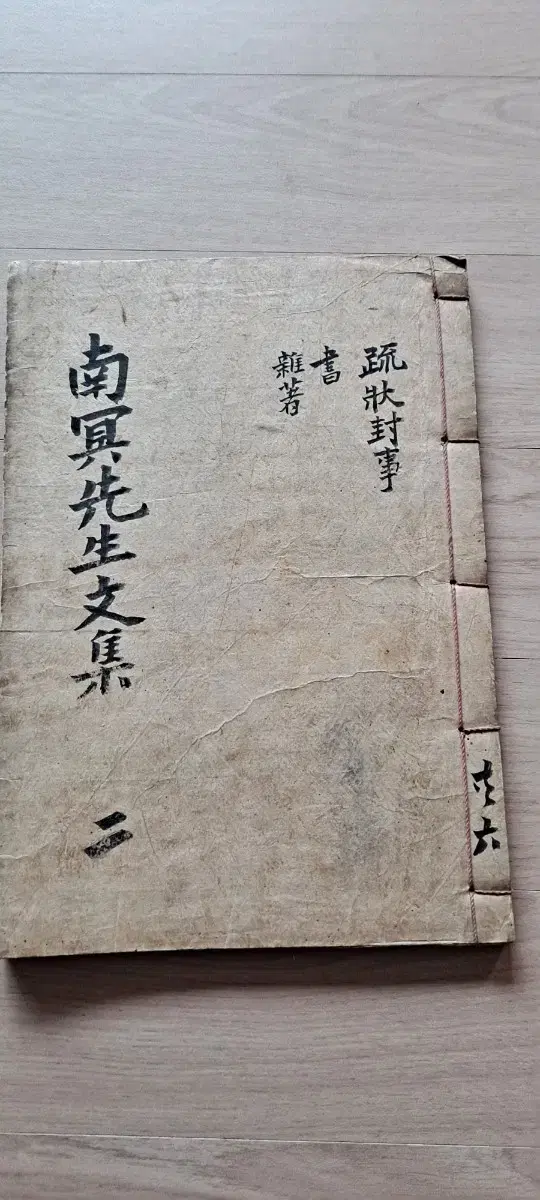 共六
疏狀封事
書
雜著
南冥先生文集 二